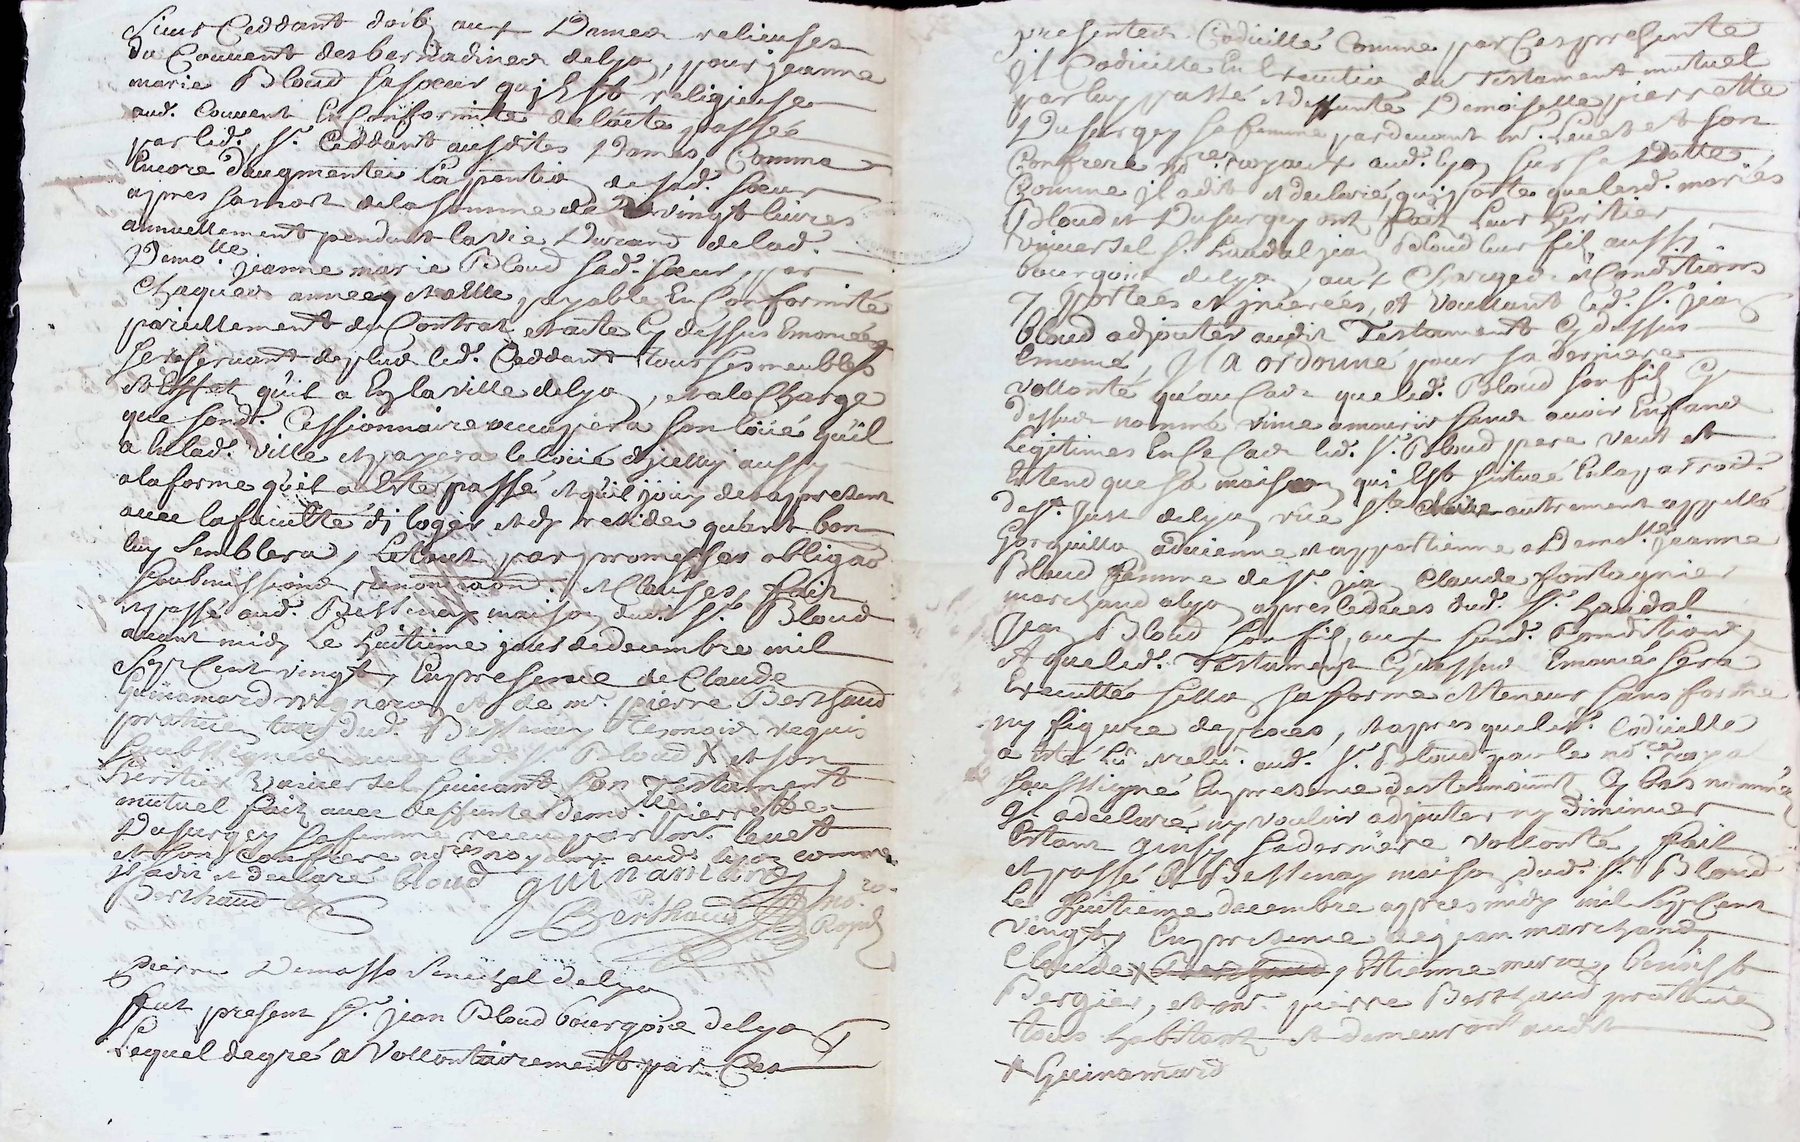 sieur Ceddant doibt aux Dames relieuses
du Couvent des bernadines de lyon, pour jeanne
marie Bloud sa sœur qui Est religieuse
aud. Couvent En Conformité de lacte passée
par led. Sr. Ceddant ausdites Dames, Comme
Encore d'augmenter la pention de sad. sœur
apres sa mort de la somme de vingt livres
annuellement pendant la vie Durand de lad.
Demolle. jeanne marie Bloud sad. sœur, par
Chaques annees et alle payable En Conformité
pareillement du Contrat et acte Cy dessus Emoncée
se reservant de plus led. Ceddant tous ses meubles
et Effet qu'il a En la ville de lyon, et a la Charge
que sond. Cessionnaire occupera son loüé qu'il
a En lad. ville et payera le loüé d'jcelluy aussy
a la forme qu'il a Esté passé et qu'il jouy de sapresent
avec la facullté d'j loger et dy resider quant bon
luy semblera, Le tout par promesses obligaon
soubmissions renontiaon. et Clauses, fait
et passé aud. Bessenay maison dud. Sr. Bloud
avant midy Le huitieme jour de decembre mil
sept Cent vingt, En presence de Claude
Guinamard vigneron et de mr. pierre Berthaud
praticien tous dud. Bessenay Temoins requis
soubssignés avec led. Sr. Bloud X et son
heritier Vniversel suivant son Testament
mutuel fait avec deffunte demolle. pierrette
Dusurgey sa femme receu par mr. levet
et son Confrere nores royaux aud. lyon comme
jl a dit et declaré bloud guinamard
Berthaud Berthaud no. ro.
Royal
pierre Demasso Senechal de lyon
fut present Sr. jean Bloud bourgois de lyon
Lequel de gré a vollontairement par Ces
presentes Codicillé Comme par Ces presente
jl Codicille En Execution du Testament mutuel
par luy passé et deffunte Demoiselle pierrette
Dusurgey sa femme pardevant mr. Levet et son
Confrere nores royaux aud. lyon sur sa Datte
Comme jl a dit et declarié, qui porte que lesd. mariés
Bloud et Dusurgey ont fait leur heritier
vniversel Sr. handal jean Bloud leur fils aussy
bourgois de lyon, aux Charges et Conditions
y portées et jnserées, et voullant led. Sr. jean
bloud adjouter audit Testament Cy dessus
Emoncé, Jl A ordonné pour sa derniere
vollonté qu'au Cas que led. Bloud son fils Cy
dessus nommé vime a mourir sans avoir Enfans
Legitimes En Ce Cas led. Sr. Bloud pere veut et
Entend que sa maison qui Est scituée En la parroisse
de St. Just de lyon, rüe Ste Claire autrement appellé
Gorguillon advienne et appartienne a Demolle. jeanne
Bloud femme de Sr. jean Claude fontagnier
marchand a lyon apres le deces dud. Sr. handal
jean Bloud son fils, aux susd. Conditions,
Et que led. Testament Cy dessus Emoncé sera
Executté sellon sa forme et teneur sans forme
ny figure de proces, et apres que led. Codicille
a Esté lû et relû aud. Sr. Bloud par le nore roya
soussigné En presence des temoins Cy bas nommés
jl a declaré ny vouloir adjouter ny diminuer
Estant ainsy sa derniere vollonté, fait
et passé A Bessenay maison dud. Sr. Bloud
Le huitieme decembre apres midy mil sept Cent
vingt, En presence de jean marchand,
Claude X Berthaud, Estienne mercon, benoist
Bergier, et mr. pierre Berthaud praticien
tous habitants et demeurant audit
X Guinamard